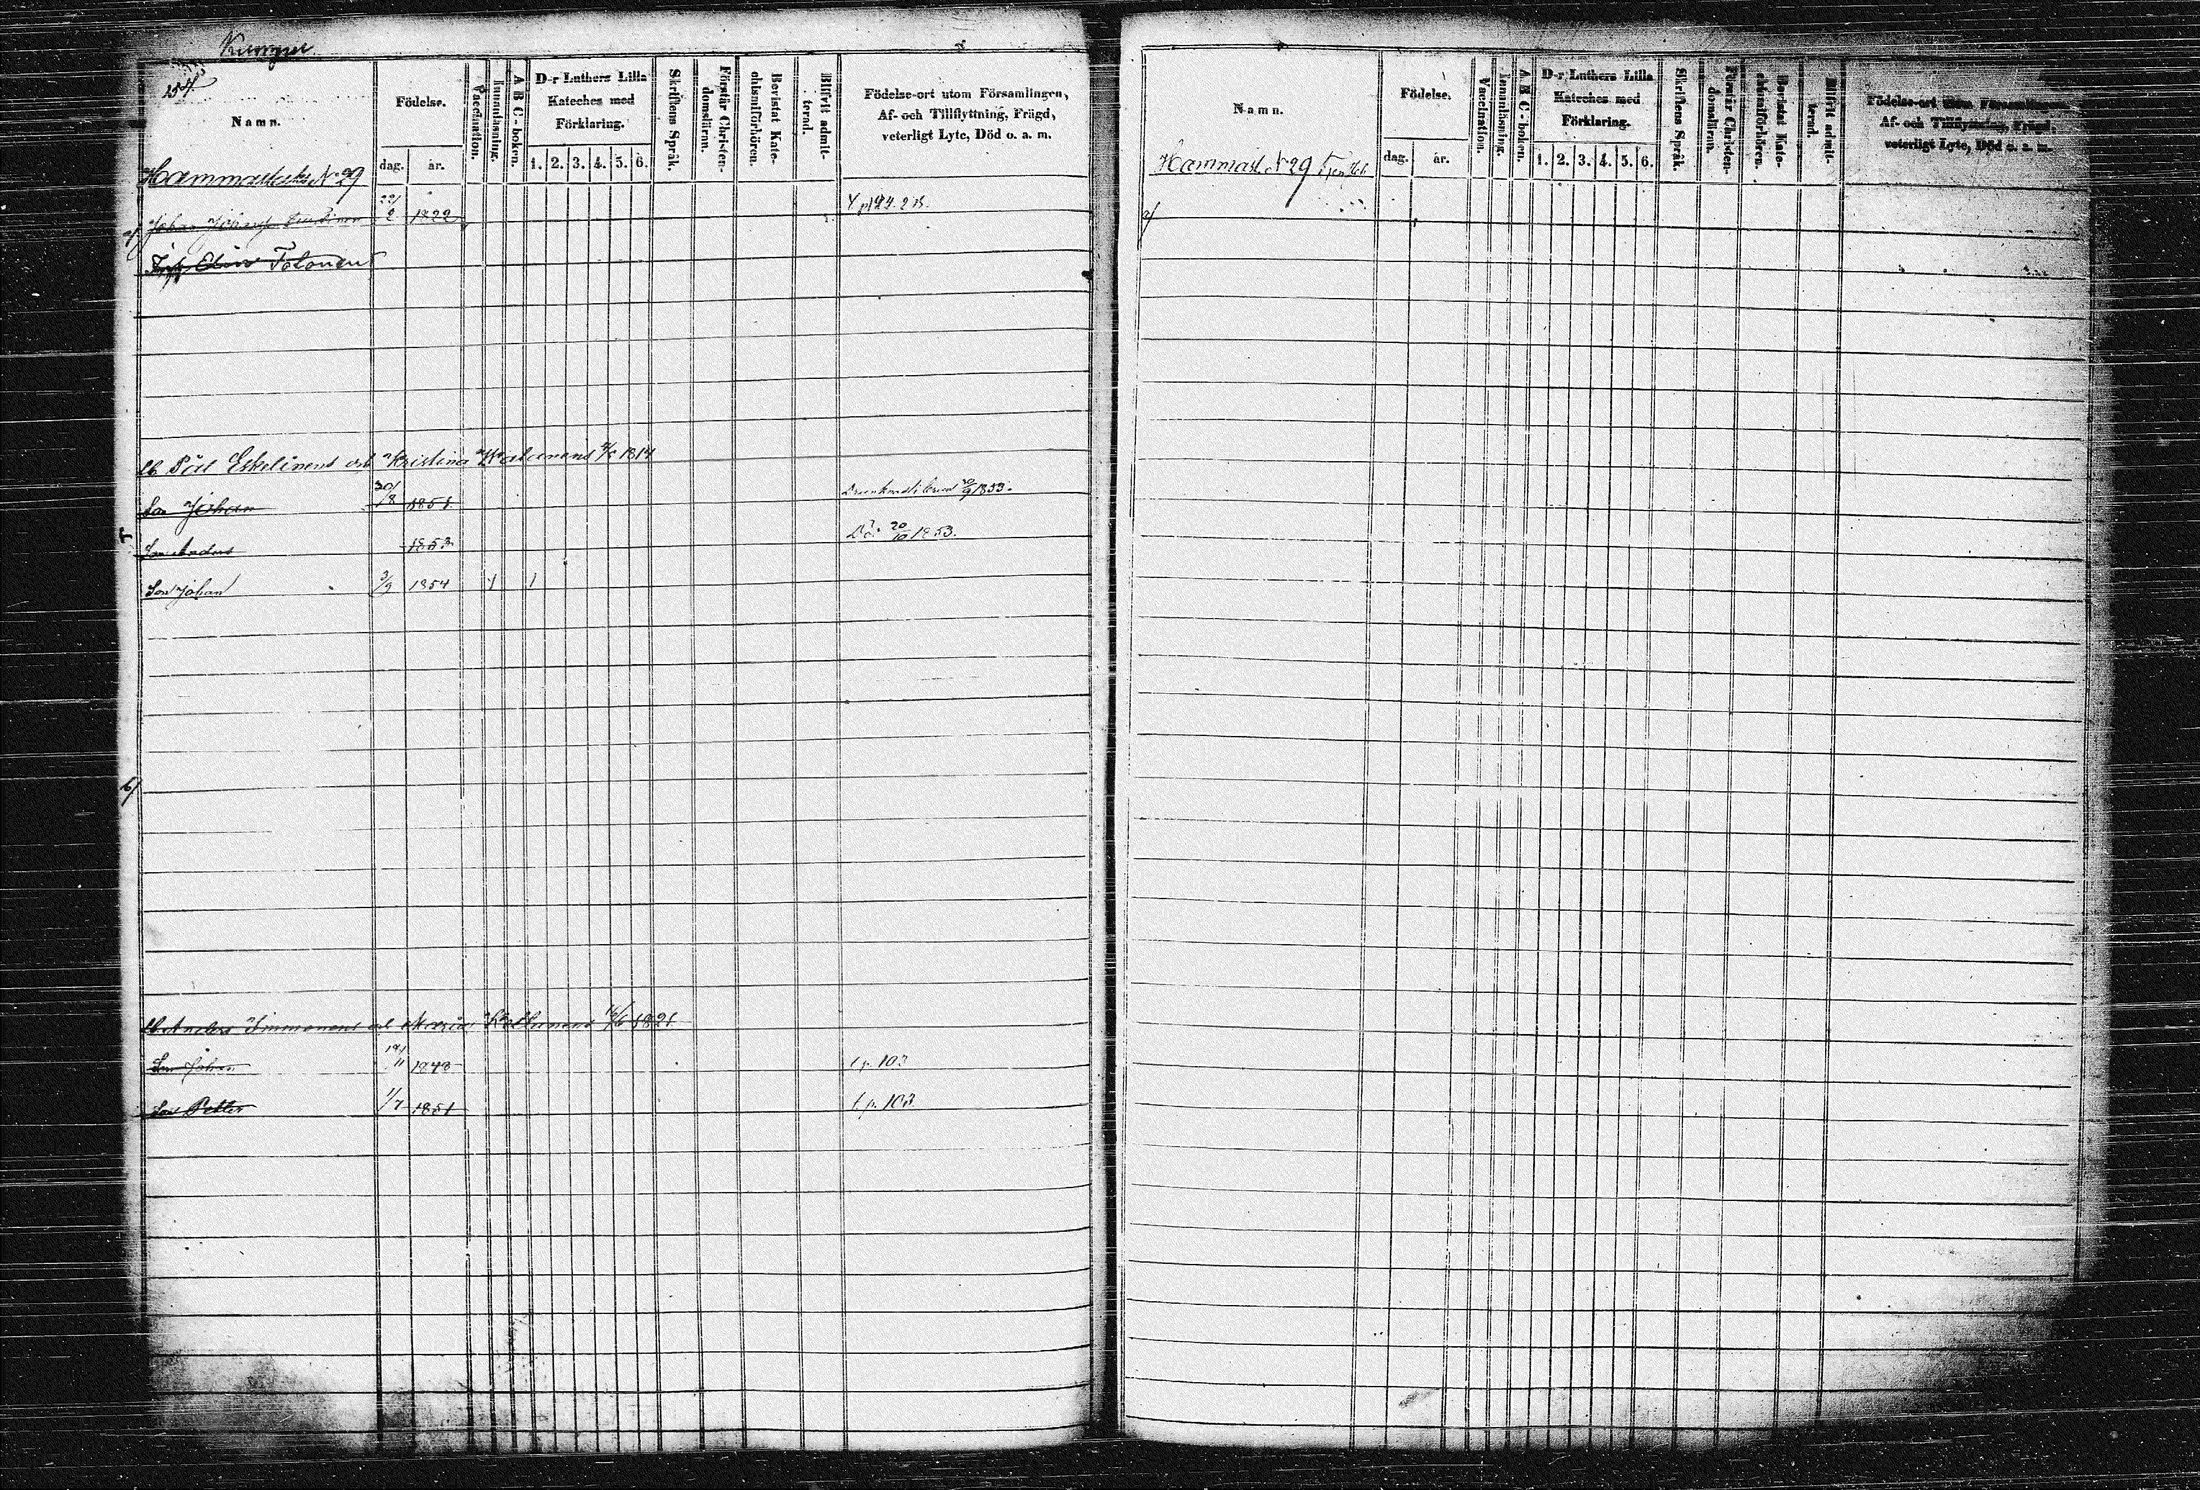 254
Namn.
Födelse.
dag. år.
Vaccination.
Innanläsning.
A B C-boken.
D-r Luthers Lilla
Kateches med
Förklaring.
1. 2. 3. 4. 5. 6.
Skriftens Språk.
Förstår Christen-
domsläran.
Bevistat Kate-
chismiförhören.
Blifvit admit-
terad.
Födelse-ort utom Församlingen,
Af- och Tillflyttning, Frägd,
veterligt Lyte, Död o. a. m.
N 29
Johan 2 1822
Enka Tolonen
Pål Eskelinens och Kristina 1814
Son Johan 30/8 1851 1853.
Son Anders 1853 Dö. 20/10 1853.
Son Johan 3/9 1854 1 1
Anders Immonens och Maria 1821
Son Johan 11 1848 p. 103
Son Petter 1/7 1851 p. 103
Namn.
Födelse.
dag. år.
Vaccination.
Innanläsning.
A B C-boken.
D-r Luthers Lilla
Kateches med
Förklaring.
1. 2. 3. 4. 5. 6.
Skriftens Språk.
Förstår Christen-
domsläran.
Bevistat Kate-
chismiförhören.
Blifvit admit-
terad.
Födelse-ort utom Församlingen,
Af- och Tillflyttning, Frägd,
veterligt Lyte, Död o. a. m.
N 29